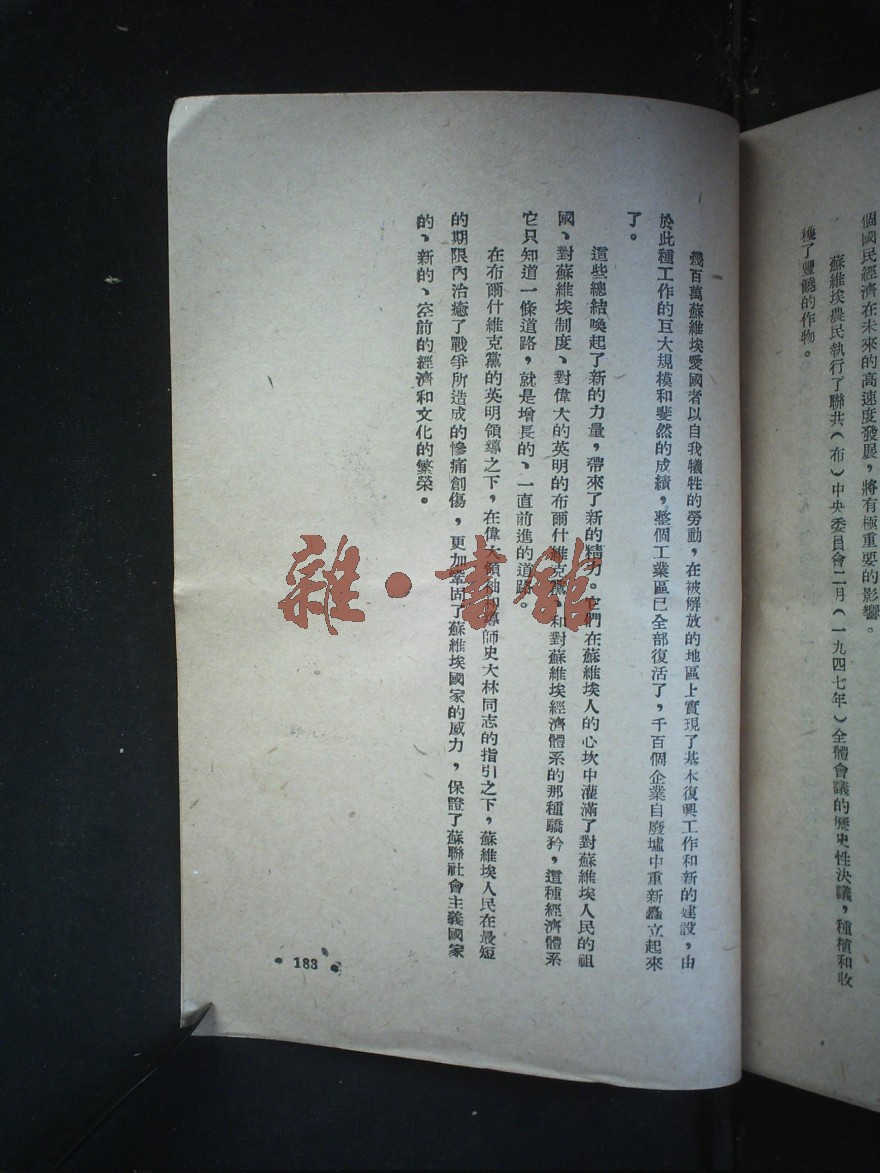 個國民經濟在未來的高速度發展，將有極重要的影響。
蘇維埃農民執行了聯共（布）中央委員會二月（一九四七年）全體會議的歷史性決議，種植和收
穫了豐饒的作物。
幾百萬蘇維埃愛國者以自我犧牲的勞動，在被解放的地區上實現了基本復興工作和新的建設，由
於此種工作的巨大規模和斐然的成績，整個工業區已全部復活了，千百個企業自廢墟中重新矗立起來
了。
這些總結喚起了新的力量，帶來了新的精力。它們在蘇維埃人的心坎中灌滿了對蘇維埃人民的祖
國、對蘇維埃制度、對偉大的英明的布爾什維克黨、和對蘇維埃經濟體系的那種驕矜，這種經濟體系
它只知道一條道路，就是增長的、一直前進的道路。
在布爾什維克黨的英明領導之下，在偉大領袖和導師史大林同志的指引之下，蘇維埃人民在最短
的期限內治癒了戰爭所造成的慘痛創傷，更加鞏固了蘇維埃國家的威力，保證了蘇聯社會主義國家
的、新的、空前的經濟和文化的繁荣。
• 183 •
雜·書館